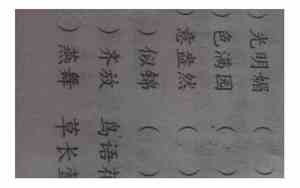 )光明媚 ( )
)色满园 ( )
意盎然 (
)似锦 ( )
)齐放 鸟语
)燕舞 草长